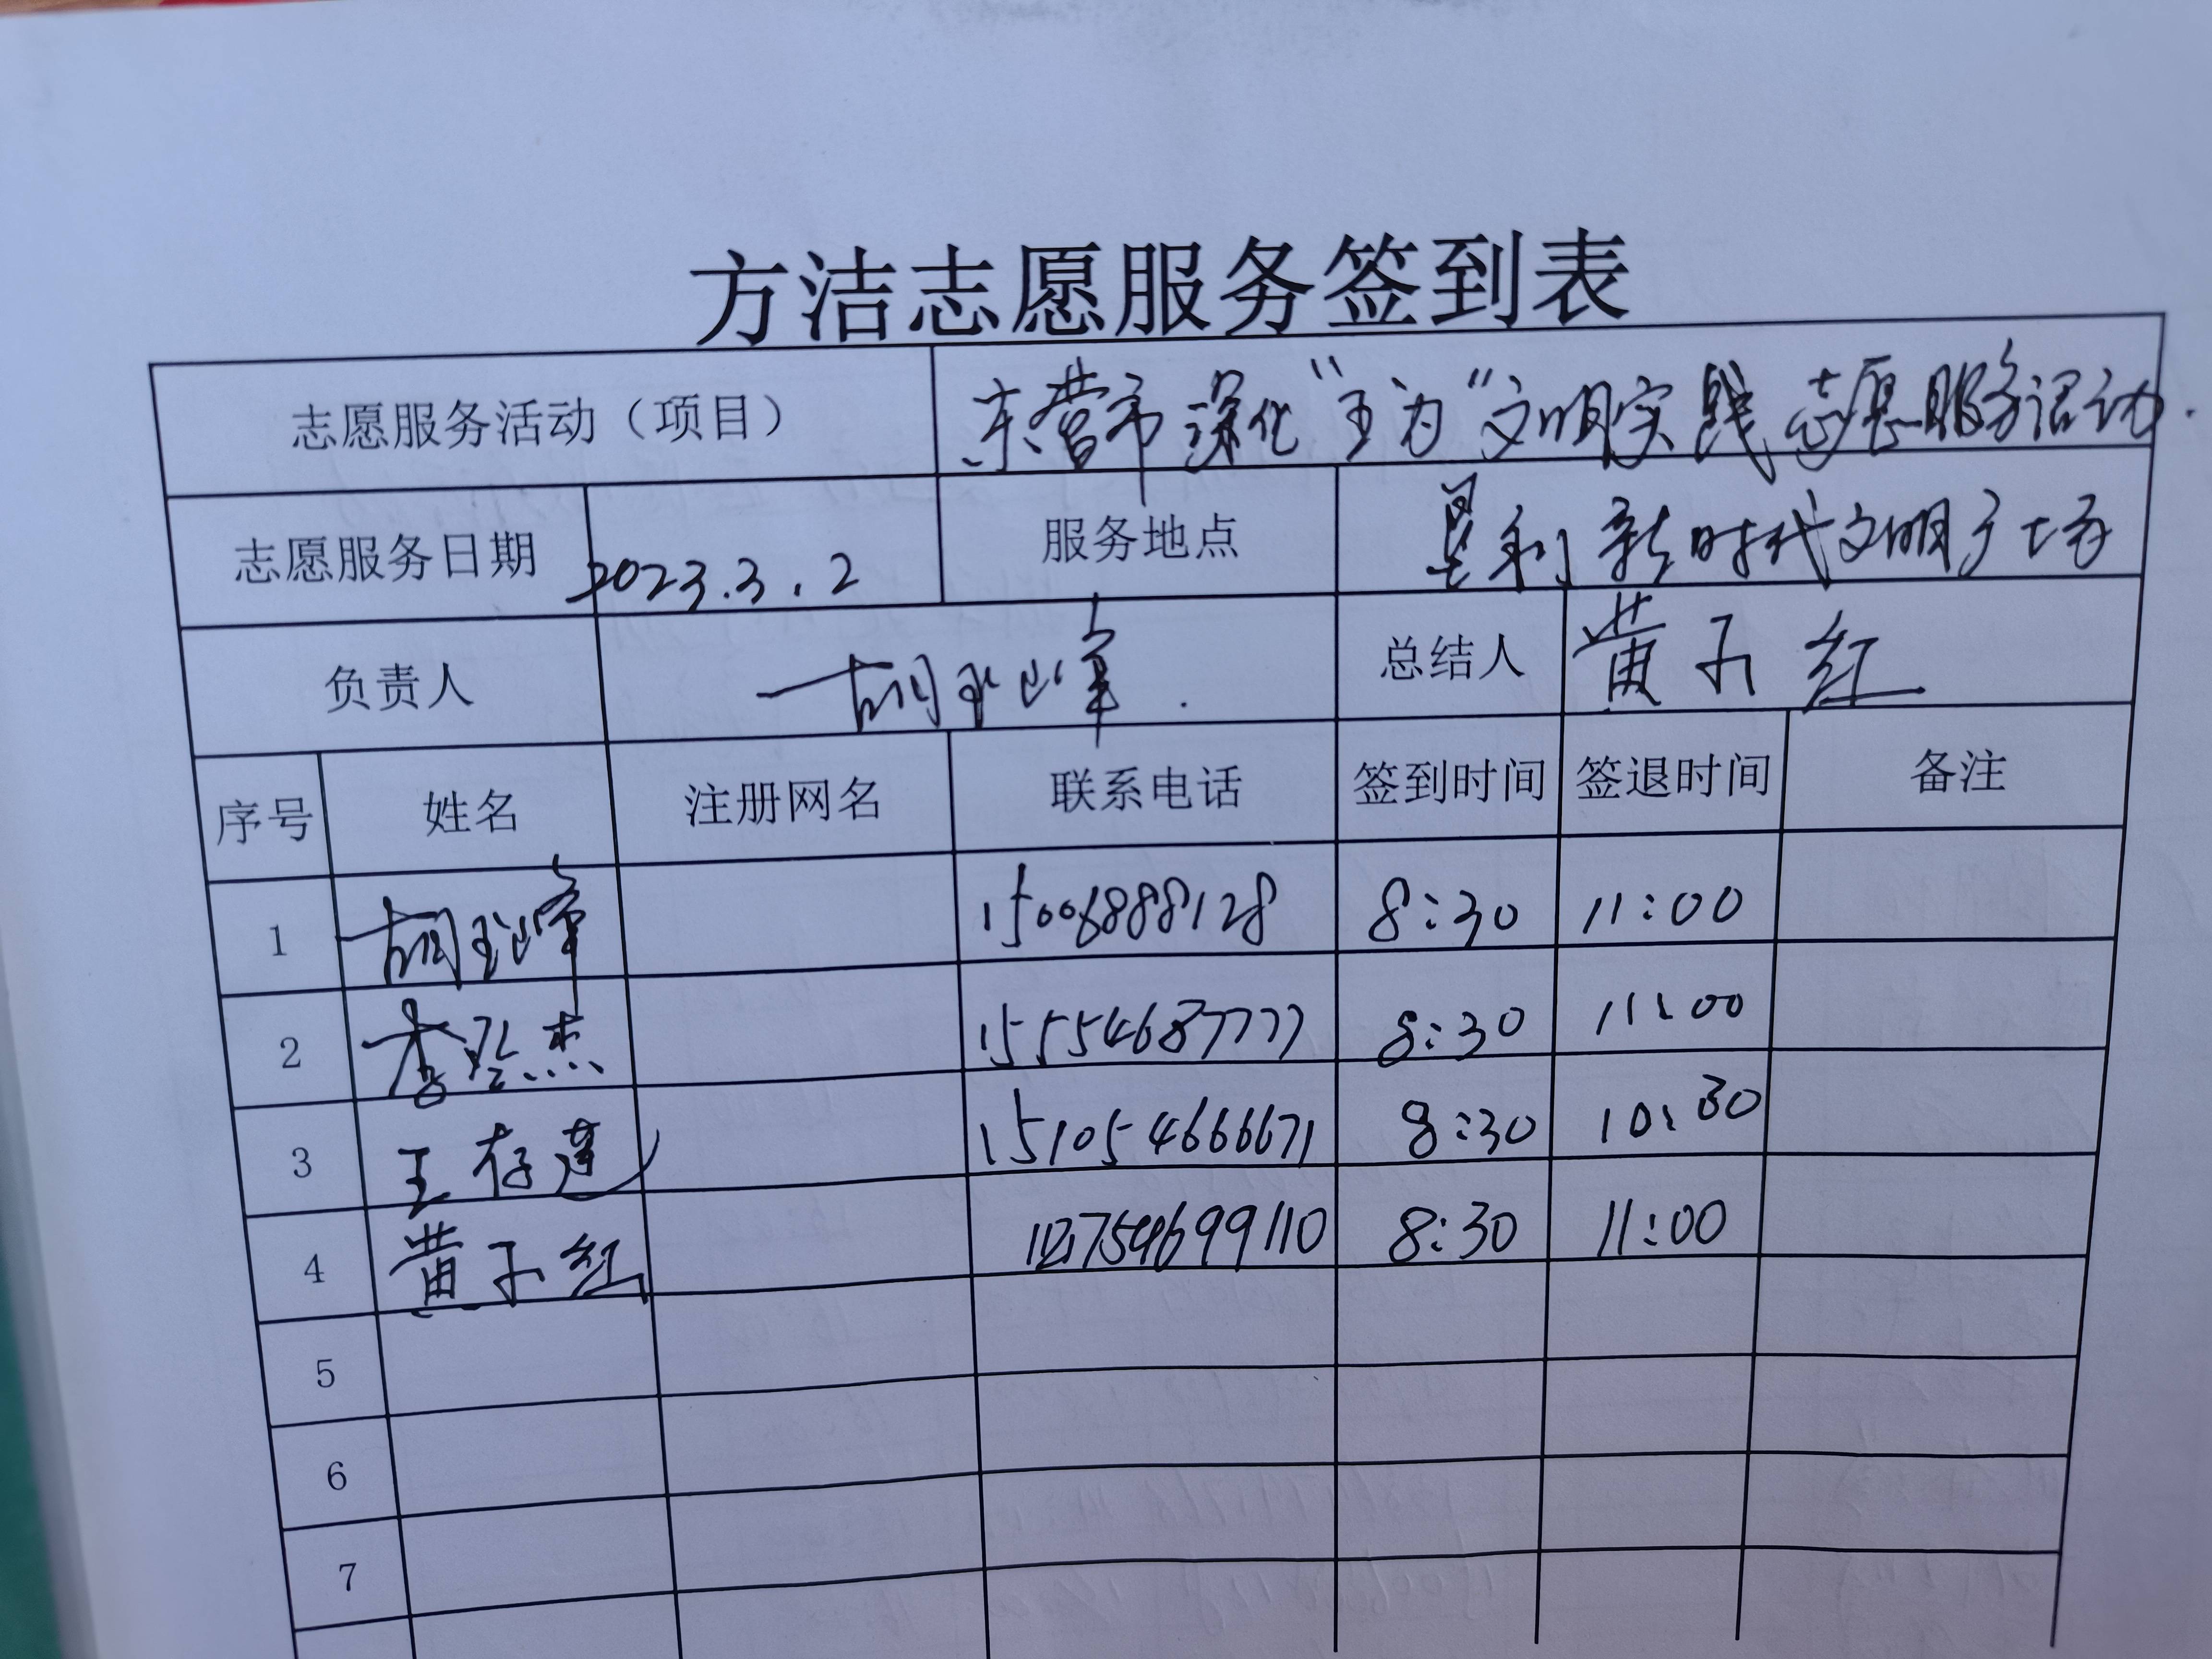 方洁志愿服务签到表
志愿服务活动（项目） 东营市深化“五为”文明实践志愿服务活动.
志愿服务日期 2023.3.2 服务地点 垦利新时代文明广场
负责人 胡 峰. 总结人 黄子红
序号 姓名 注册网名 联系电话 签到时间 签退时间 备注
1 胡 峰 15006888128 8:30 11:00
2 李 杰 15554687777 8:30 11:00
3 王存莲 15105466671 8:30 10:30
4 黄子红 8:30 11:00
5
6
7